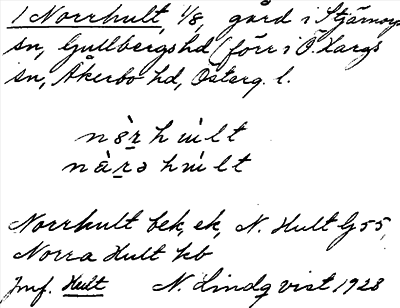 1 Norrhult, 1/8, gård i Stjärnorp
sn, Gullbergs hd (förr i Ö. Hargs
sn, Åkerbo hd, Österg. l.
Norrhult bek, ek, N. Hult G 55,
Norra Hult kb
Jmf. Hult N. Lindqvist 1928